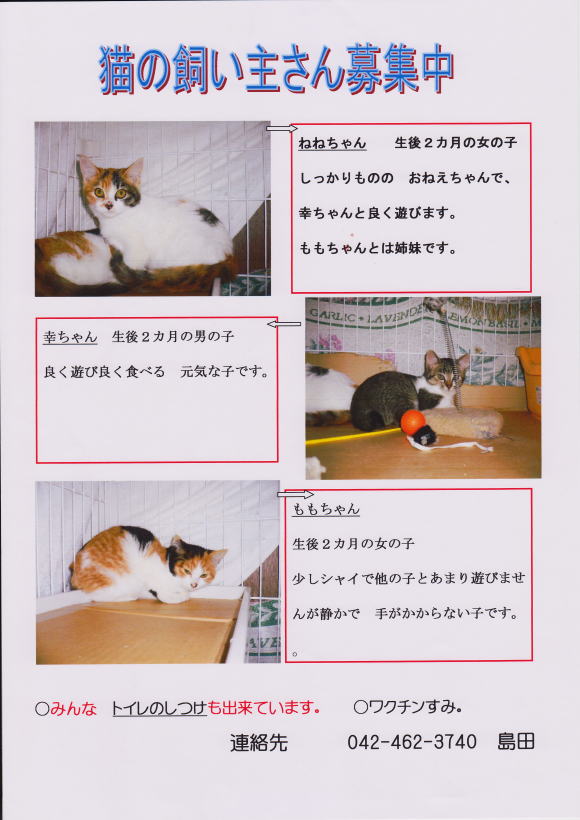 猫の飼い主さん募集中
ねねちゃん　　生後２カ月の女の子
しっかりものの　おねえちゃんで、
幸ちゃんと良く遊びます。
ももちゃんとは姉妹です。
GARLIC • LAVENDER
LEMON BASIL • M
幸ちゃん　生後２カ月の男の子
良く遊び良く食べる　元気な子です。
ももちゃん
生後２カ月の女の子
少しシャイで他の子とあまり遊びませ
んが静かで　手がかからない子です。
。
LAVEN
○みんな　トイレのしつけも出来ています。　　○ワクチンすみ。
連絡先　　　042-462-3740　島田